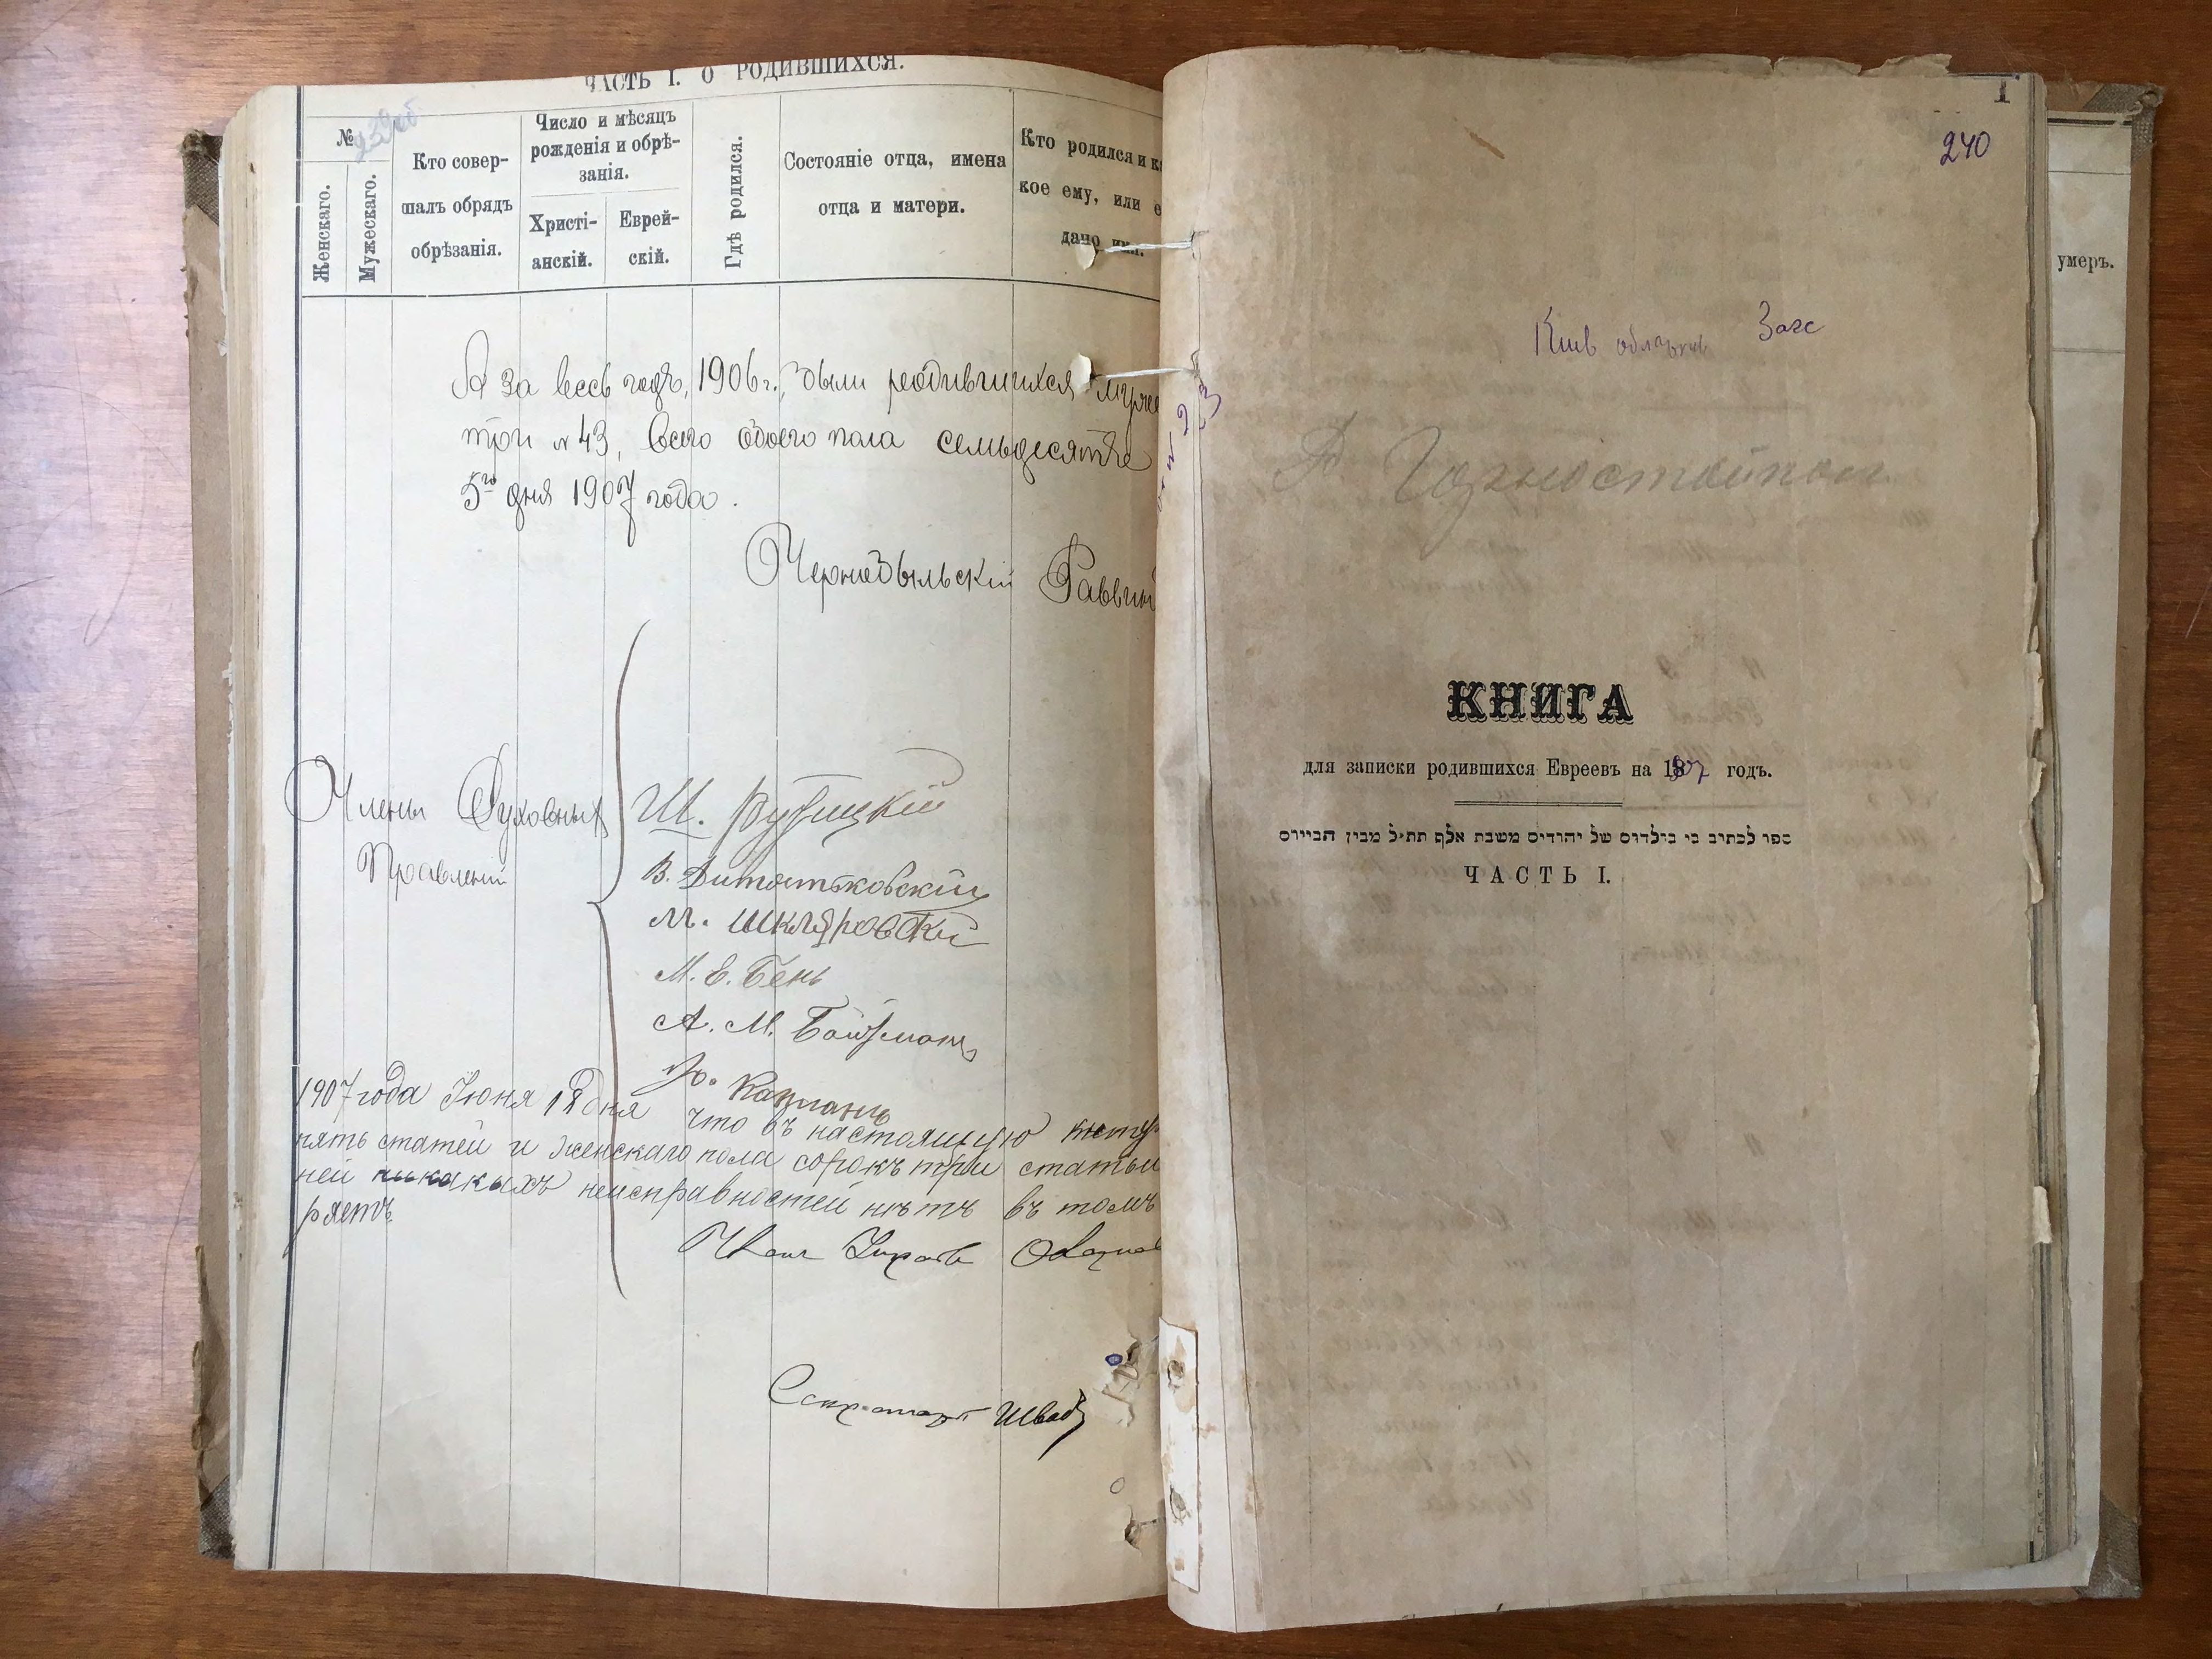 ЧАСТЬ I. О РОДИВШИХСЯ.
№
Женскаго.
Мужескаго.
Кто совер-
шалъ обрядъ
обрѣзанія.
Число и мѣсяцъ
рожденія и обрѣ-
занія.
Христі-
анскій.
Еврей-
скій.
Гдѣ родился.
Состояніе отца, имена
отца и матери.
Кто родился и ка
кое ему, или е
дано имя.
А за весь годъ, 1906 г., были родившихся муже
три № 43, всего обоего пола семьдесятъ
5го дня 1907 года.
Чернобыльскій Раввин
Члены Духовныхъ
Правленій
Ш.
В.
М. Шкляровскій
М. Е. Бень
А. М. Бойфманъ
Капланъ
1907 года Іюня 18 дня что въ настоящую
пять статей и женскаго пола сорокъ три статьи
ней никакихъ неисправностей нѣтъ въ томъ
ряетъ
Секретарь Швабъ
1
240
Киев Загс
Горностайпол
КНИГА
для записки родившихся Евреевъ на 1907 годъ.
ספר לכתוב בו בילדים של יהודים משנת אלף תת״ל מבין הביירים
ЧАСТЬ I.
умеръ.